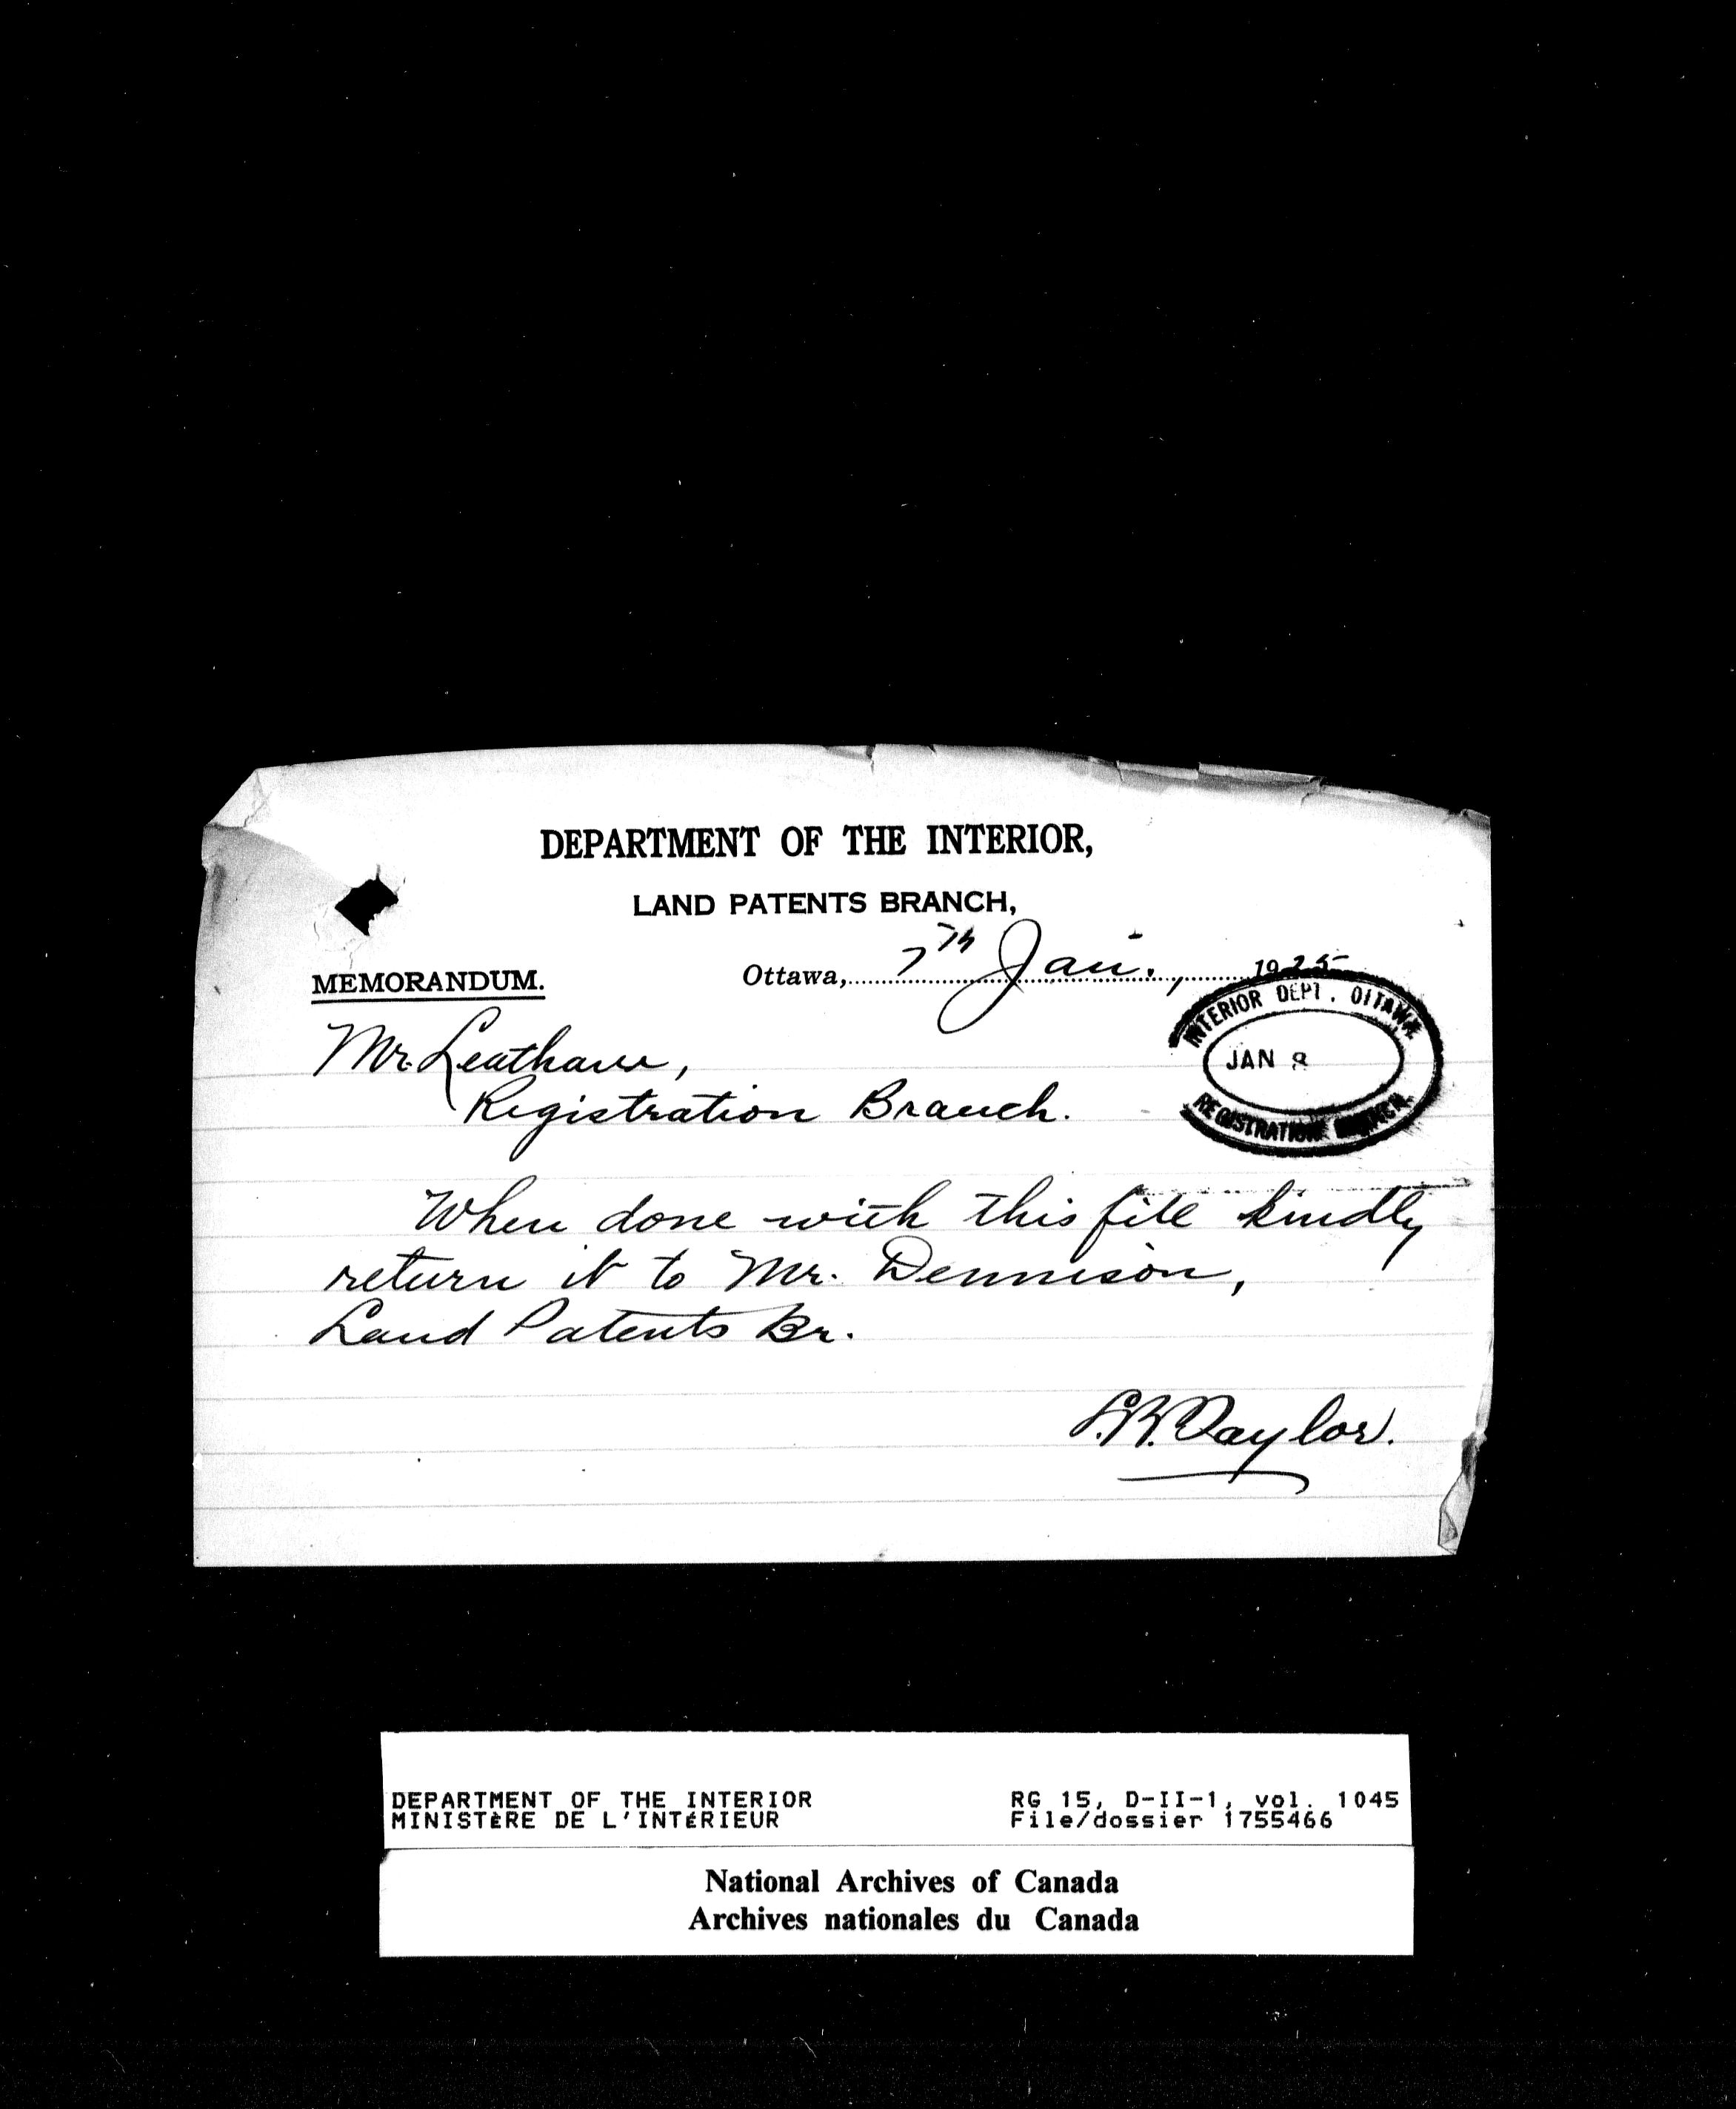 DEPARTMENT OF THE INTERIOR,
LAND PATENTS BRANCH,
MEMORANDUM. Ottawa, 7th Jan., 1925
INTERIOR DEPT. OTTAWA
JAN 8
REGISTRATION BRANCH
Mr. Leatham,
Registration Branch.
When done with this file kindly
return it to Mr. Dennison,
Land Patents Br.
Taylor.
DEPARTMENT OF THE INTERIOR RG 15, D-II-1, vol. 1045
MINISTÈRE DE L'INTÉRIEUR File/dossier 1755466
National Archives of Canada
Archives nationales du Canada